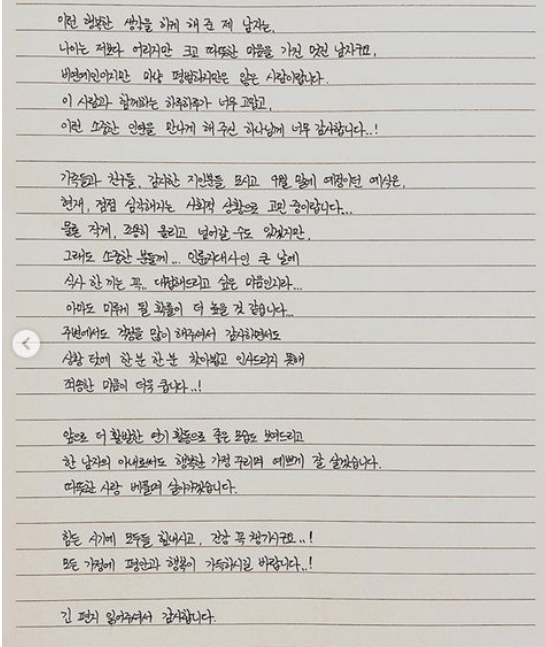 이런 행복한 생각을 하게 해 준 제 남자는,
나이는 저보다 어리지만 크고 따뜻한 마음을 가진 멋진 남자구요,
비연예인이지만 마냥 평범하지만은 않은 사람이랍니다.
이 사람과 함께하는 하루하루가 너무 고맙고,
이런 소중한 인연을 만나게 해 주신 하나님께 너무 감사합니다..!
가족들과 친구들, 감사한 지인분들 모시고 9월 말에 예정이던 예식은,
현재, 점점 심각해지는 사회적 상황으로 고민 중이랍니다...
물론 작게, 조용히 올리고 넘어갈 수도 있겠지만,
그래도 소중한 분들께... 인륜지대사인 큰 날에
식사 한 끼는 꼭.. 대접해드리고 싶은 마음인지라...
아마도 미루게 될 확률이 더 높을 것 같습니다...
주변에서도 걱정을 많이 해주셔서 감사하면서도
상황 탓에 한 분 한 분 찾아뵙고 인사드리지 못해
죄송한 마음이 더욱 큽니다..!
앞으로 더 활발한 연기 활동으로 좋은 모습도 보여드리고
한 남자의 아내로서도 행복한 가정 꾸리며 예쁘게 잘 살겠습니다.
따뜻한 사랑 베풀며 살아가겠습니다.
힘든 시기에 모두들 힘내시고, 건강 꼭 챙기시구요..!
모든 가정에 평안과 행복이 가득하시길 바랍니다..!
긴 편지 읽어주셔서 감사합니다.